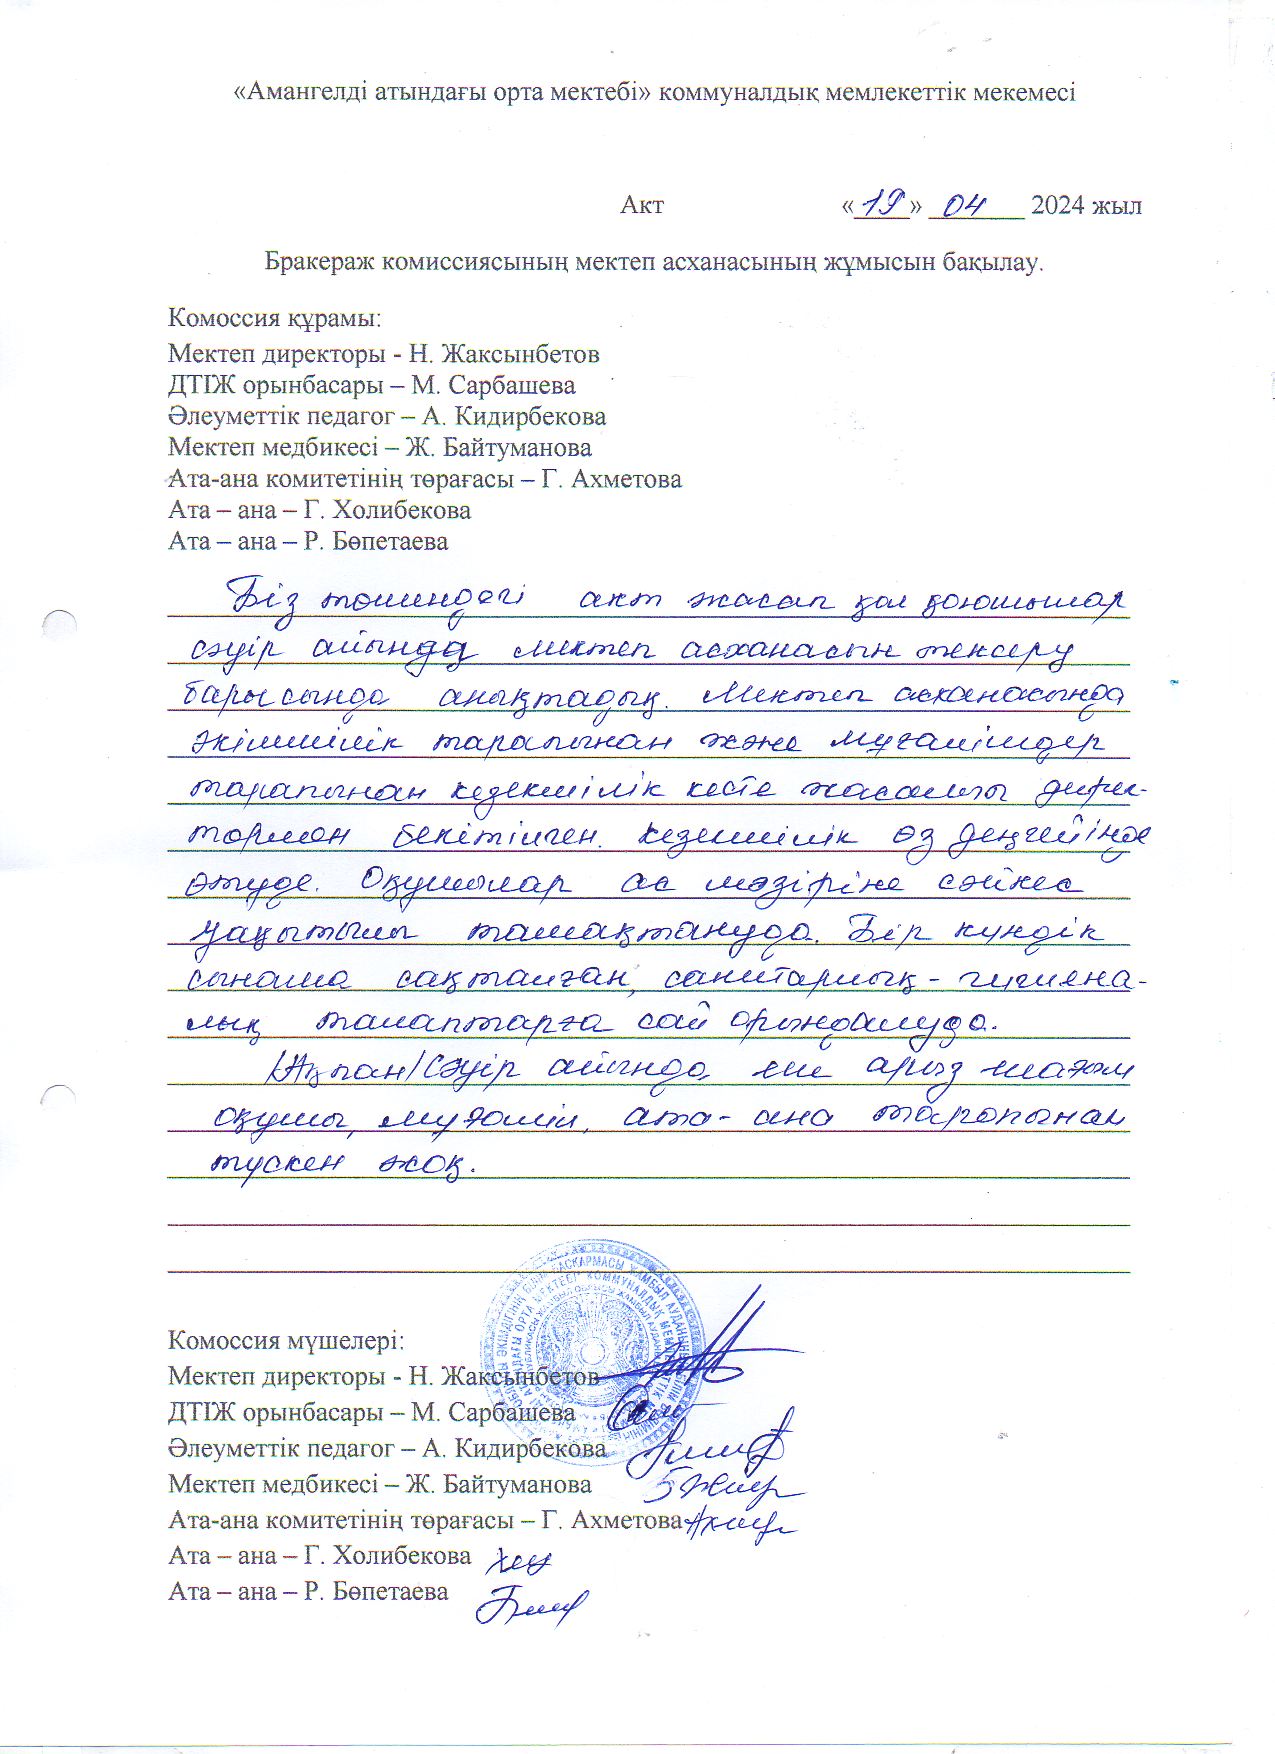 «Амангелді атындағы орта мектебі» коммуналдық мемлекеттік мекемесі
Акт «19» 04 2024 жыл
Бракераж комиссиясының мектеп асханасының жұмысын бақылау.
Комоссия құрамы:
Мектеп директоры - Н. Жаксынбетов
ДТІЖ орынбасары – М. Сарбашева
Әлеуметтік педагог – А. Кидирбекова
Мектеп медбикесі – Ж. Байтуманова
Ата-ана комитетінің төрағасы – Г. Ахметова
Ата – ана – Г. Холибекова
Ата – ана – Р. Бөпетаева
Біз төмендегі акт жасап қол қоюшылар
сәуір айында мектеп асханасын тексеру
барысында анықтадық. Мектеп асханасында
әкімшілік тарапынан және мұғалімдер
тарапынан кезекшілік кесте жасалып дирек-
тормен бекітілген. Кезекшілік өз деңгейінде
өтуде. Оқушылар ас мәзіріне сәйкес
уақытылы тамақтануда. Бір күндік
сынама сақталған, санитарлық - гигиена-
лық талаптарға сай орындалуда.
/Ақпан/Сәуір айында еш арыз шағым
оқушы, мұғалім, ата- ана тарапынан
түскен жоқ.
Комоссия мүшелері:
Мектеп директоры - Н. Жаксынбетов
ДТІЖ орынбасары – М. Сарбашева
Әлеуметтік педагог – А. Кидирбекова
Мектеп медбикесі – Ж. Байтуманова
Ата-ана комитетінің төрағасы – Г. Ахметова
Ата – ана – Г. Холибекова
Ата – ана – Р. Бөпетаева